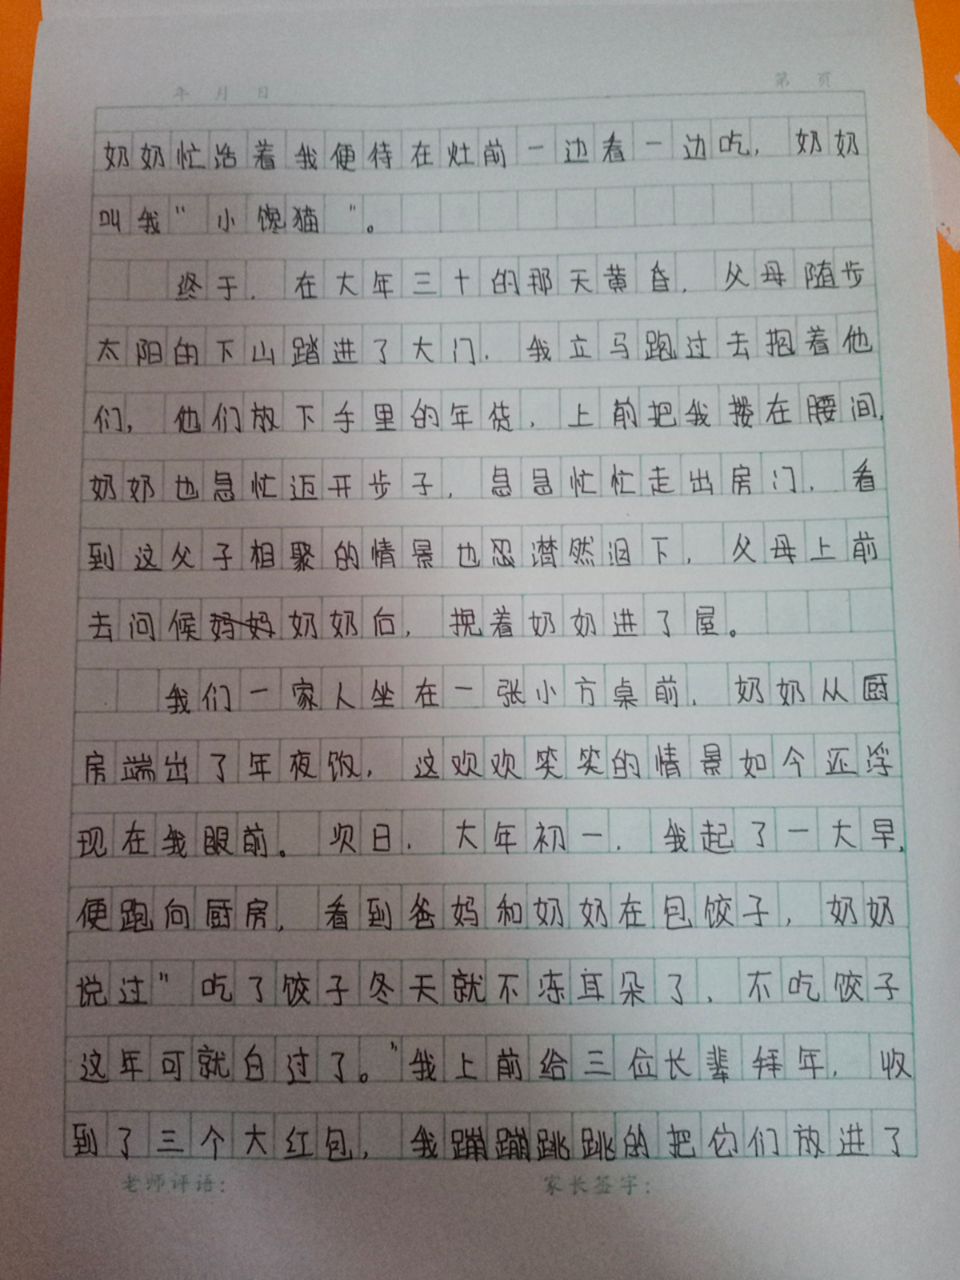 年 月 日 第 页
奶奶忙活着我便待在灶前一边看一边吃，奶奶
叫我“小馋猫”。
终于，在大年三十的那天黄昏，父母随步
太阳的下山踏进了大门，我立马跑过去抱着他
们，他们放下手里的年货，上前把我搂在腰间，
奶奶也急忙迈开步子，急急忙忙走出房门，看
到这父子相聚的情景也忍潸然泪下，父母上前
去问候妈妈奶奶后，挽着奶奶进了屋。
我们一家人坐在一张小方桌前，奶奶从厨
房端出了年夜饭，这欢欢笑笑的情景如今还浮
现在我眼前。次日，大年初一，我起了一大早，
便跑向厨房，看到爸妈和奶奶在包饺子，奶奶
说过“吃了饺子冬天就不冻耳朵了，不吃饺子
这年可就白过了。”我上前给三位长辈拜年，收
到了三个大红包，我蹦蹦跳跳的把它们放进了
老师评语： 家长签字：